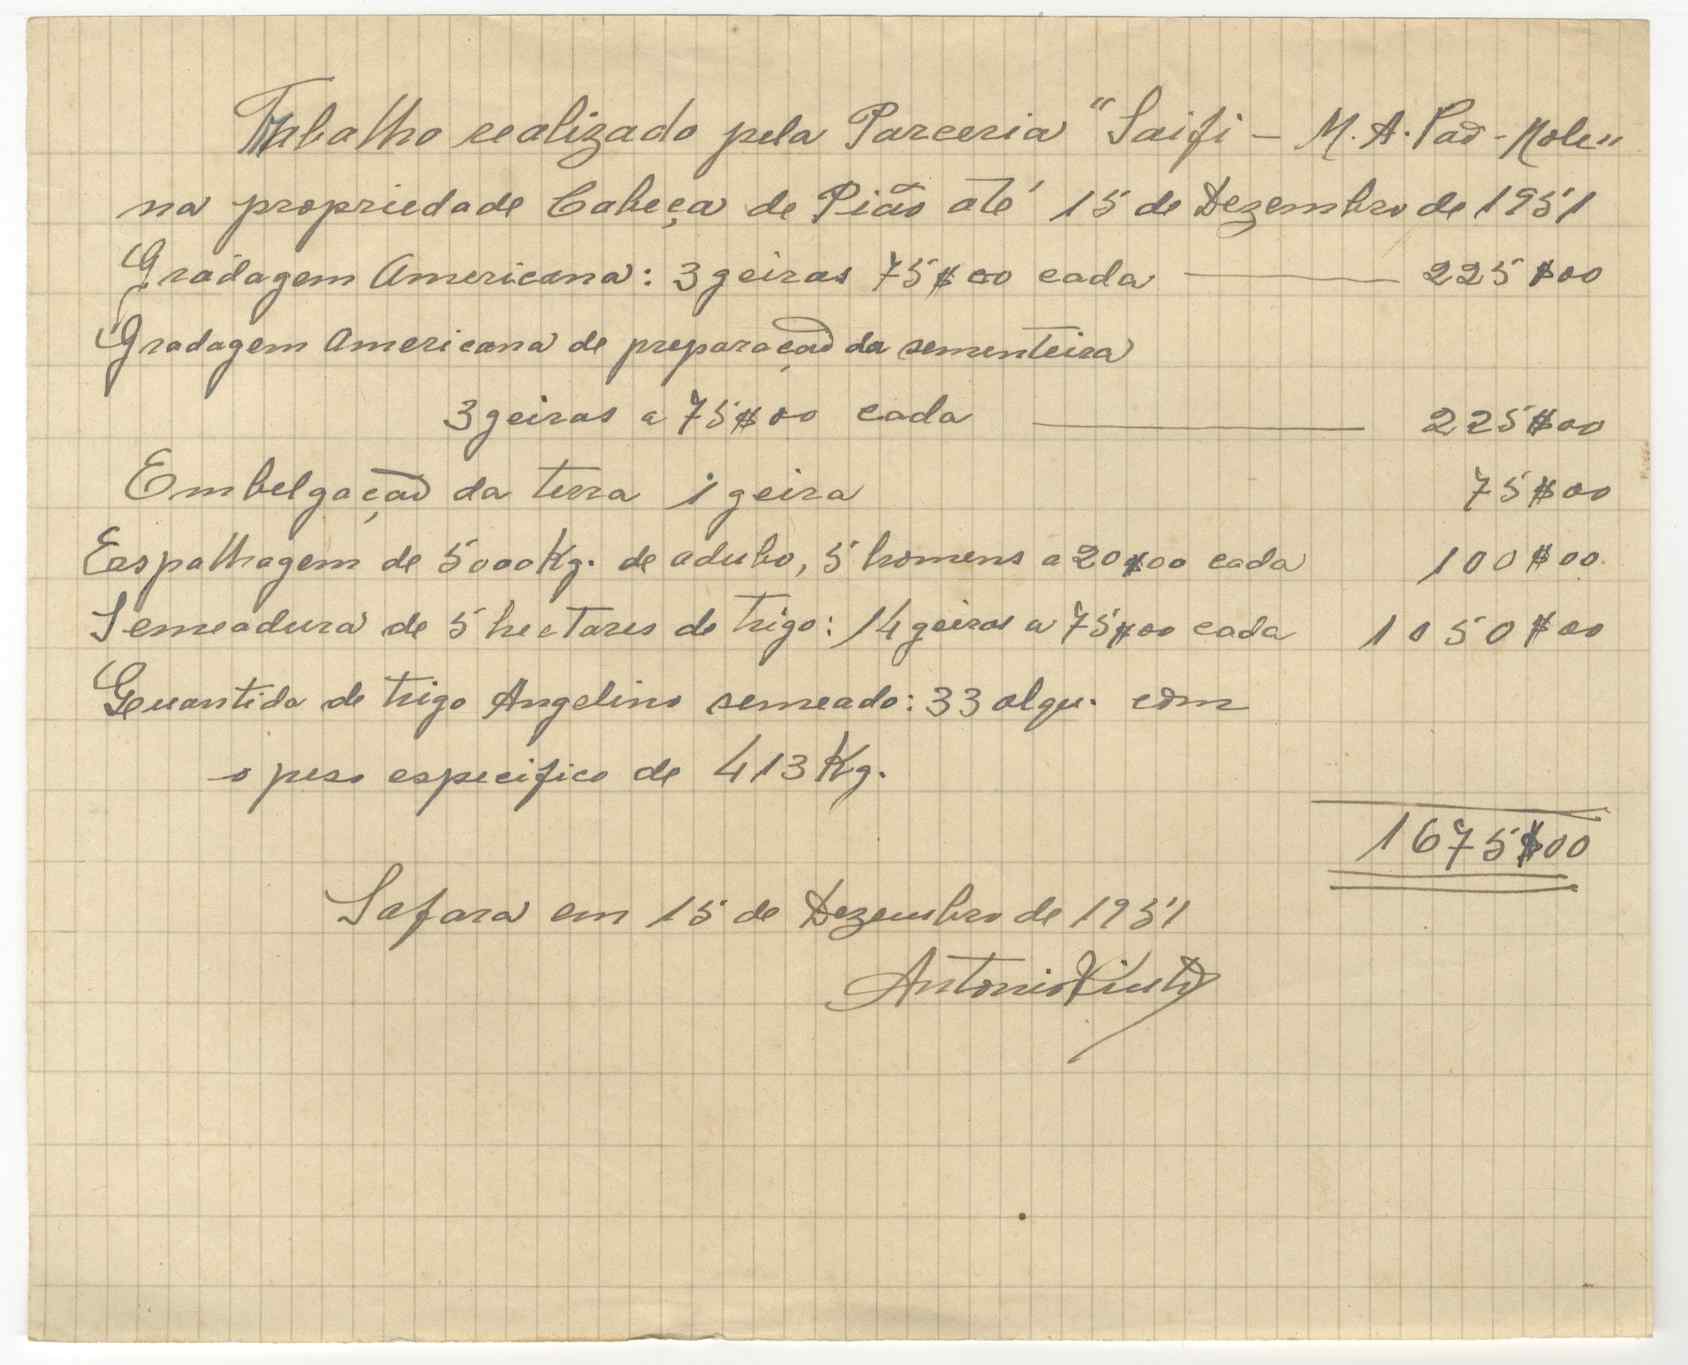 Trabalho realizado pela Parceria "Saifi — M. A. Pão-Mole"
na propriedade Cabeça de Pião até 15 de Dezembro de 1951
Gradagem Americana: 3 geiras 75$00 cada — 225$00
Gradagem Americana de preparação da sementeira
3 geiras a 75$00 cada — 225$00
Embelgação da terra 1 geira 75$00
Espalhagem de 5000 Kg. de adubo, 5 homens a 20$00 cada 100$00
Semeadura de 5 hectares de trigo: 14 geiras a 75$00 cada 1050$00
Quantida de trigo Angelino semeado: 33 alqu. com
o peso especifico de 413 Kg.
1675$00
Safara em 15 de Dezembro de 1951
Antonio